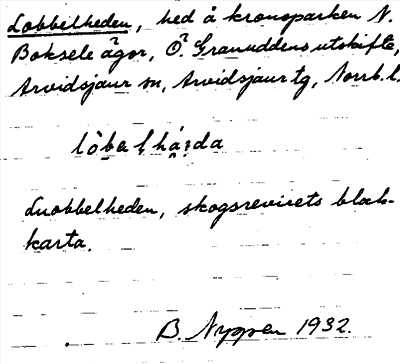 Lobbelheden, hed å kronoparken N.
Boksele ägor, Ö. Granuddens utskifte,
Arvidsjaur sn, Arvidsjaur tg, Norrb. l.
Luobbelheden, skogsrevirets block-
karta.
B. Nyppen 1932.